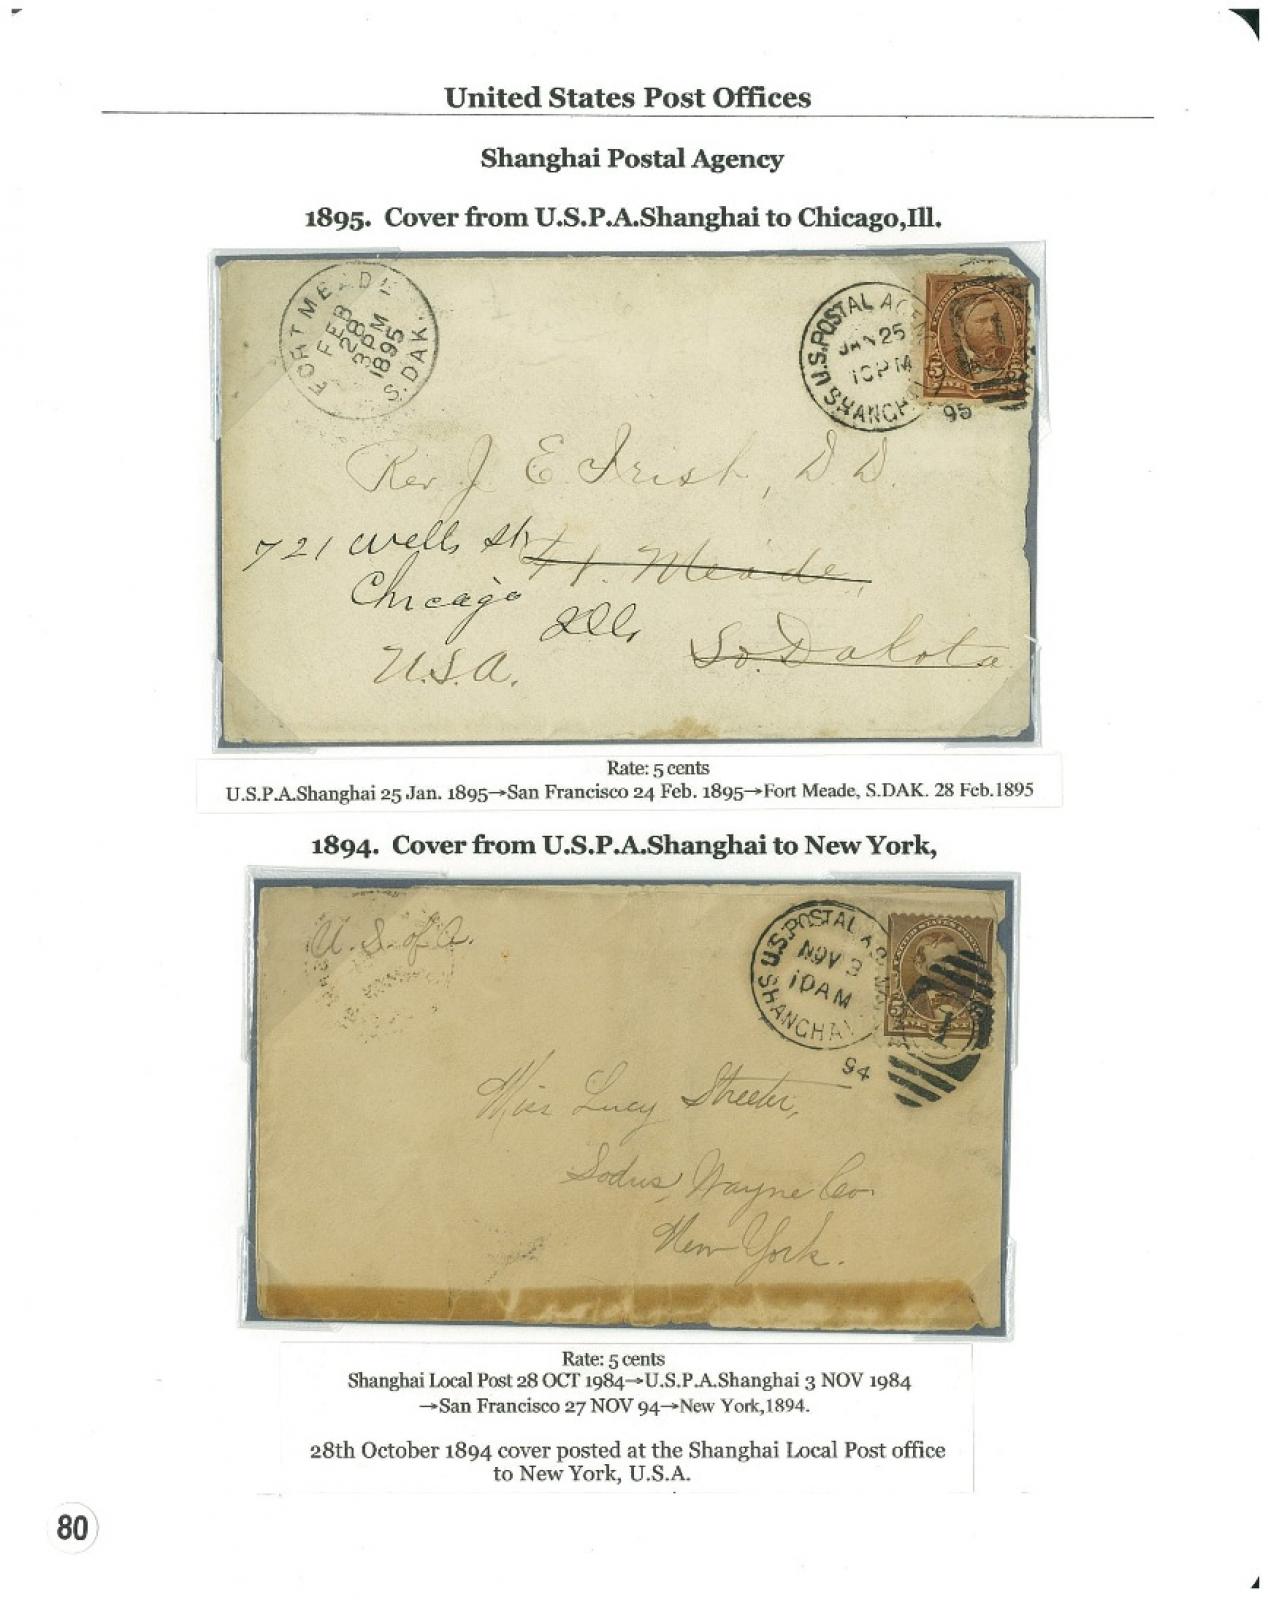 United States Post Offices
Shanghai Postal Agency
1895. Cover from U.S.P.A.Shanghai to Chicago,Ill.
FORT MEADE
FEB
28
3PM
1895
S.DAK.
U.S.POSTAL AGEN
JAN 25
10PM
SHANGHA
95
5
Rev J E Irish, D.D.
721 Wells St Ft. Meade,
Chicago
Ills So. Dakota
U.S.A.
Rate: 5 cents
U.S.P.A.Shanghai 25 Jan. 1895→San Francisco 24 Feb. 1895→Fort Meade, S.DAK. 28 Feb.1895
1894. Cover from U.S.P.A.Shanghai to New York,
U.S. of A.
U.S.POSTAL AG
NOV 3
10AM
SHANGHA
94
5
1
Miss Lucy Streeter,
Sodus, Wayne Co.
New York.
Rate: 5 cents
Shanghai Local Post 28 OCT 1984→U.S.P.A.Shanghai 3 NOV 1984
→San Francisco 27 NOV 94→New York,1894.
28th October 1894 cover posted at the Shanghai Local Post office
to New York, U.S.A.
80